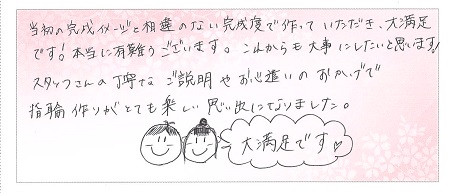 当初の完成イメージと相違のない完成度で作っていただき、大満足
です!本当に有難うございます。これからも大事にしたいと思います!
スタッフさんの丁寧なご説明やお心遣いのおかげで
指輪作りがとても楽しい思い出になりました。
大満足です♡